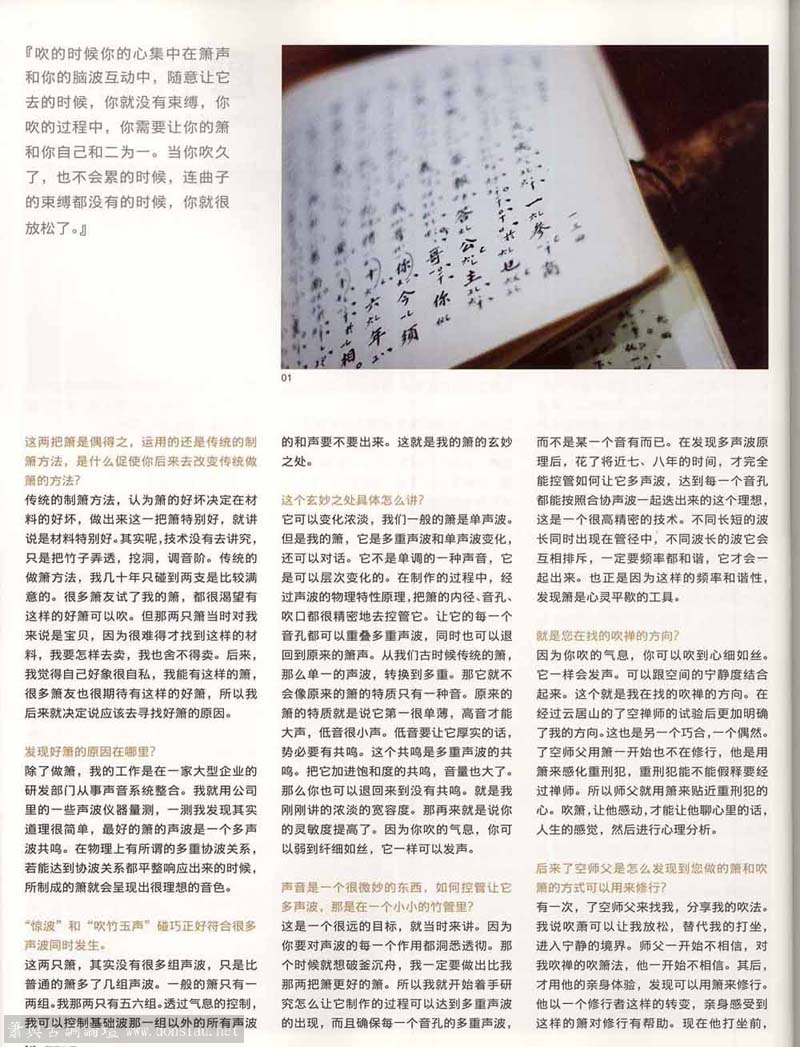 『吹的时候你的心集中在箫声
和你的脑波互动中，随意让它
去的时候，你就没有束缚，你
吹的过程中，你需要让你的箫
和你自己和二为一。当你吹久
了，也不会累的时候，连曲子
的束缚都没有的时候，你就很
放松了。』
01
这两把箫是偶得之，运用的还是传统的制
箫方法，是什么促使你后来去改变传统做
箫的方法?
传统的制箫方法，认为箫的好坏决定在材
料的好坏，做出来这一把箫特别好，就讲
说是材料特别好。其实呢,技术没有去讲究，
只是把竹子弄透，挖洞，调音阶。传统的
做箫方法，我几十年只碰到两支是比较满
意的。很多箫友试了我的箫，都很渴望有
这样的好箫可以吹。但那两只箫当时对我
来说是宝贝，因为很难得才找到这样的材
料，我要怎样去卖，我也舍不得卖。后来，
我觉得自己好象很自私，我能有这样的箫，
很多箫友也很期待有这样的好箫，所以我
后来就决定说应该去寻找好箫的原因。
发现好箫的原因在哪里?
除了做箫，我的工作是在一家大型企业的
研发部门从事声音系统整合。我就用公司
里的一些声波仪器量测，一测我发现其实
道理很简单，最好的箫的声波是一个多声
波共鸣。在物理上有所谓的多重协波关系，
若能达到协波关系都平整响应出来的时候，
所制成的箫就会呈现出很理想的音色。
“惊波”和“吹竹玉声”碰巧正好符合很多
声波同时发生。
这两只箫，其实没有很多组声波，只是比
普通的箫多了几组声波。一般的箫只有一
两组。我那两只有五六组。透过气息的控制，
我可以控制基础波那一组以外的所有声波
的和声要不要出来。这就是我的箫的玄妙
之处。
这个玄妙之处具体怎么讲?
它可以变化浓淡，我们一般的箫是单声波。
但是我的箫，它是多重声波和单声波变化，
还可以对话。它不是单调的一种声音，它
是可以层次变化的。在制作的过程中，经
过声波的物理特性原理,把箫的内径、音孔、
吹口都很精密地去控管它。让它的每一个
音孔都可以重叠多重声波，同时也可以退
回到原来的箫声。从我们古时候传统的箫，
那么单一的声波，转换到多重。那它就不
会像原来的箫的特质只有一种音。原来的
箫的特质就是说它第一很单薄，高音才能
大声，低音很小声。低音要让它厚实的话，
势必要有共鸣。这个共鸣是多重声波的共
鸣。把它加进饱和度的共鸣，音量也大了。
那么你也可以退回来到没有共鸣。就是我
刚刚讲的浓淡的宽容度。那再来就是说你
的灵敏度提高了。因为你吹的气息，你可
以弱到纤细如丝，它一样可以发声。
声音是一个很微妙的东西，如何控管让它
多声波，那是在一个小小的竹管里?
这是一个很远的目标，就当时来讲。因为
你要对声波的每一个作用都洞悉透彻。那
个时候就想破釜沉舟，我一定要做出比我
那两把箫更好的箫。所以我就开始着手研
究怎么让它制作的过程可以达到多重声波
的出现，而且确保每一个音孔的多重声波，
而不是某一个音有而已。在发现多声波原
理后，花了将近七、八年的时间，才完全
能控管如何让它多声波，达到每一个音孔
都能按照合协声波一起迭出来的这个理想，
这是一个很高精密的技术。不同长短的波
长同时出现在管径中，不同波长的波它会
互相排斥，一定要频率都和谐，它才会一
起出来。也正是因为这样的频率和谐性，
发现箫是心灵平歇的工具。
就是您在找的吹禅的方向?
因为你吹的气息，你可以吹到心细如丝。
它一样会发声。可以跟空间的宁静度结合
起来。这个就是我在找的吹禅的方向。在
经过云居山的了空禅师的试验后更加明确
了我的方向。这也是另一个巧合，一个偶然。
了空师父用箫一开始也不在修行，他是用
箫来感化重刑犯，重刑犯能不能假释要经
过禅师。所以师父就用箫来贴近重刑犯的
心。吹箫，让他感动，才能让他聊心里的话，
人生的感觉，然后进行心理分析。
后来了空师父是怎么发现到您做的箫和吹
箫的方式可以用来修行?
有一次，了空师父来找我，分享我的吹法。
我说吹萧可以让我放松，替代我的打坐，
进入宁静的境界。师父一开始不相信，对
我吹禅的吹箫法，他一开始不相信。其后，
才用他的亲身体验，发现可以用箫来修行。
他以一个修行者这样的转变，亲身感受到
这样的箫对修行有帮助。现在他打坐前，